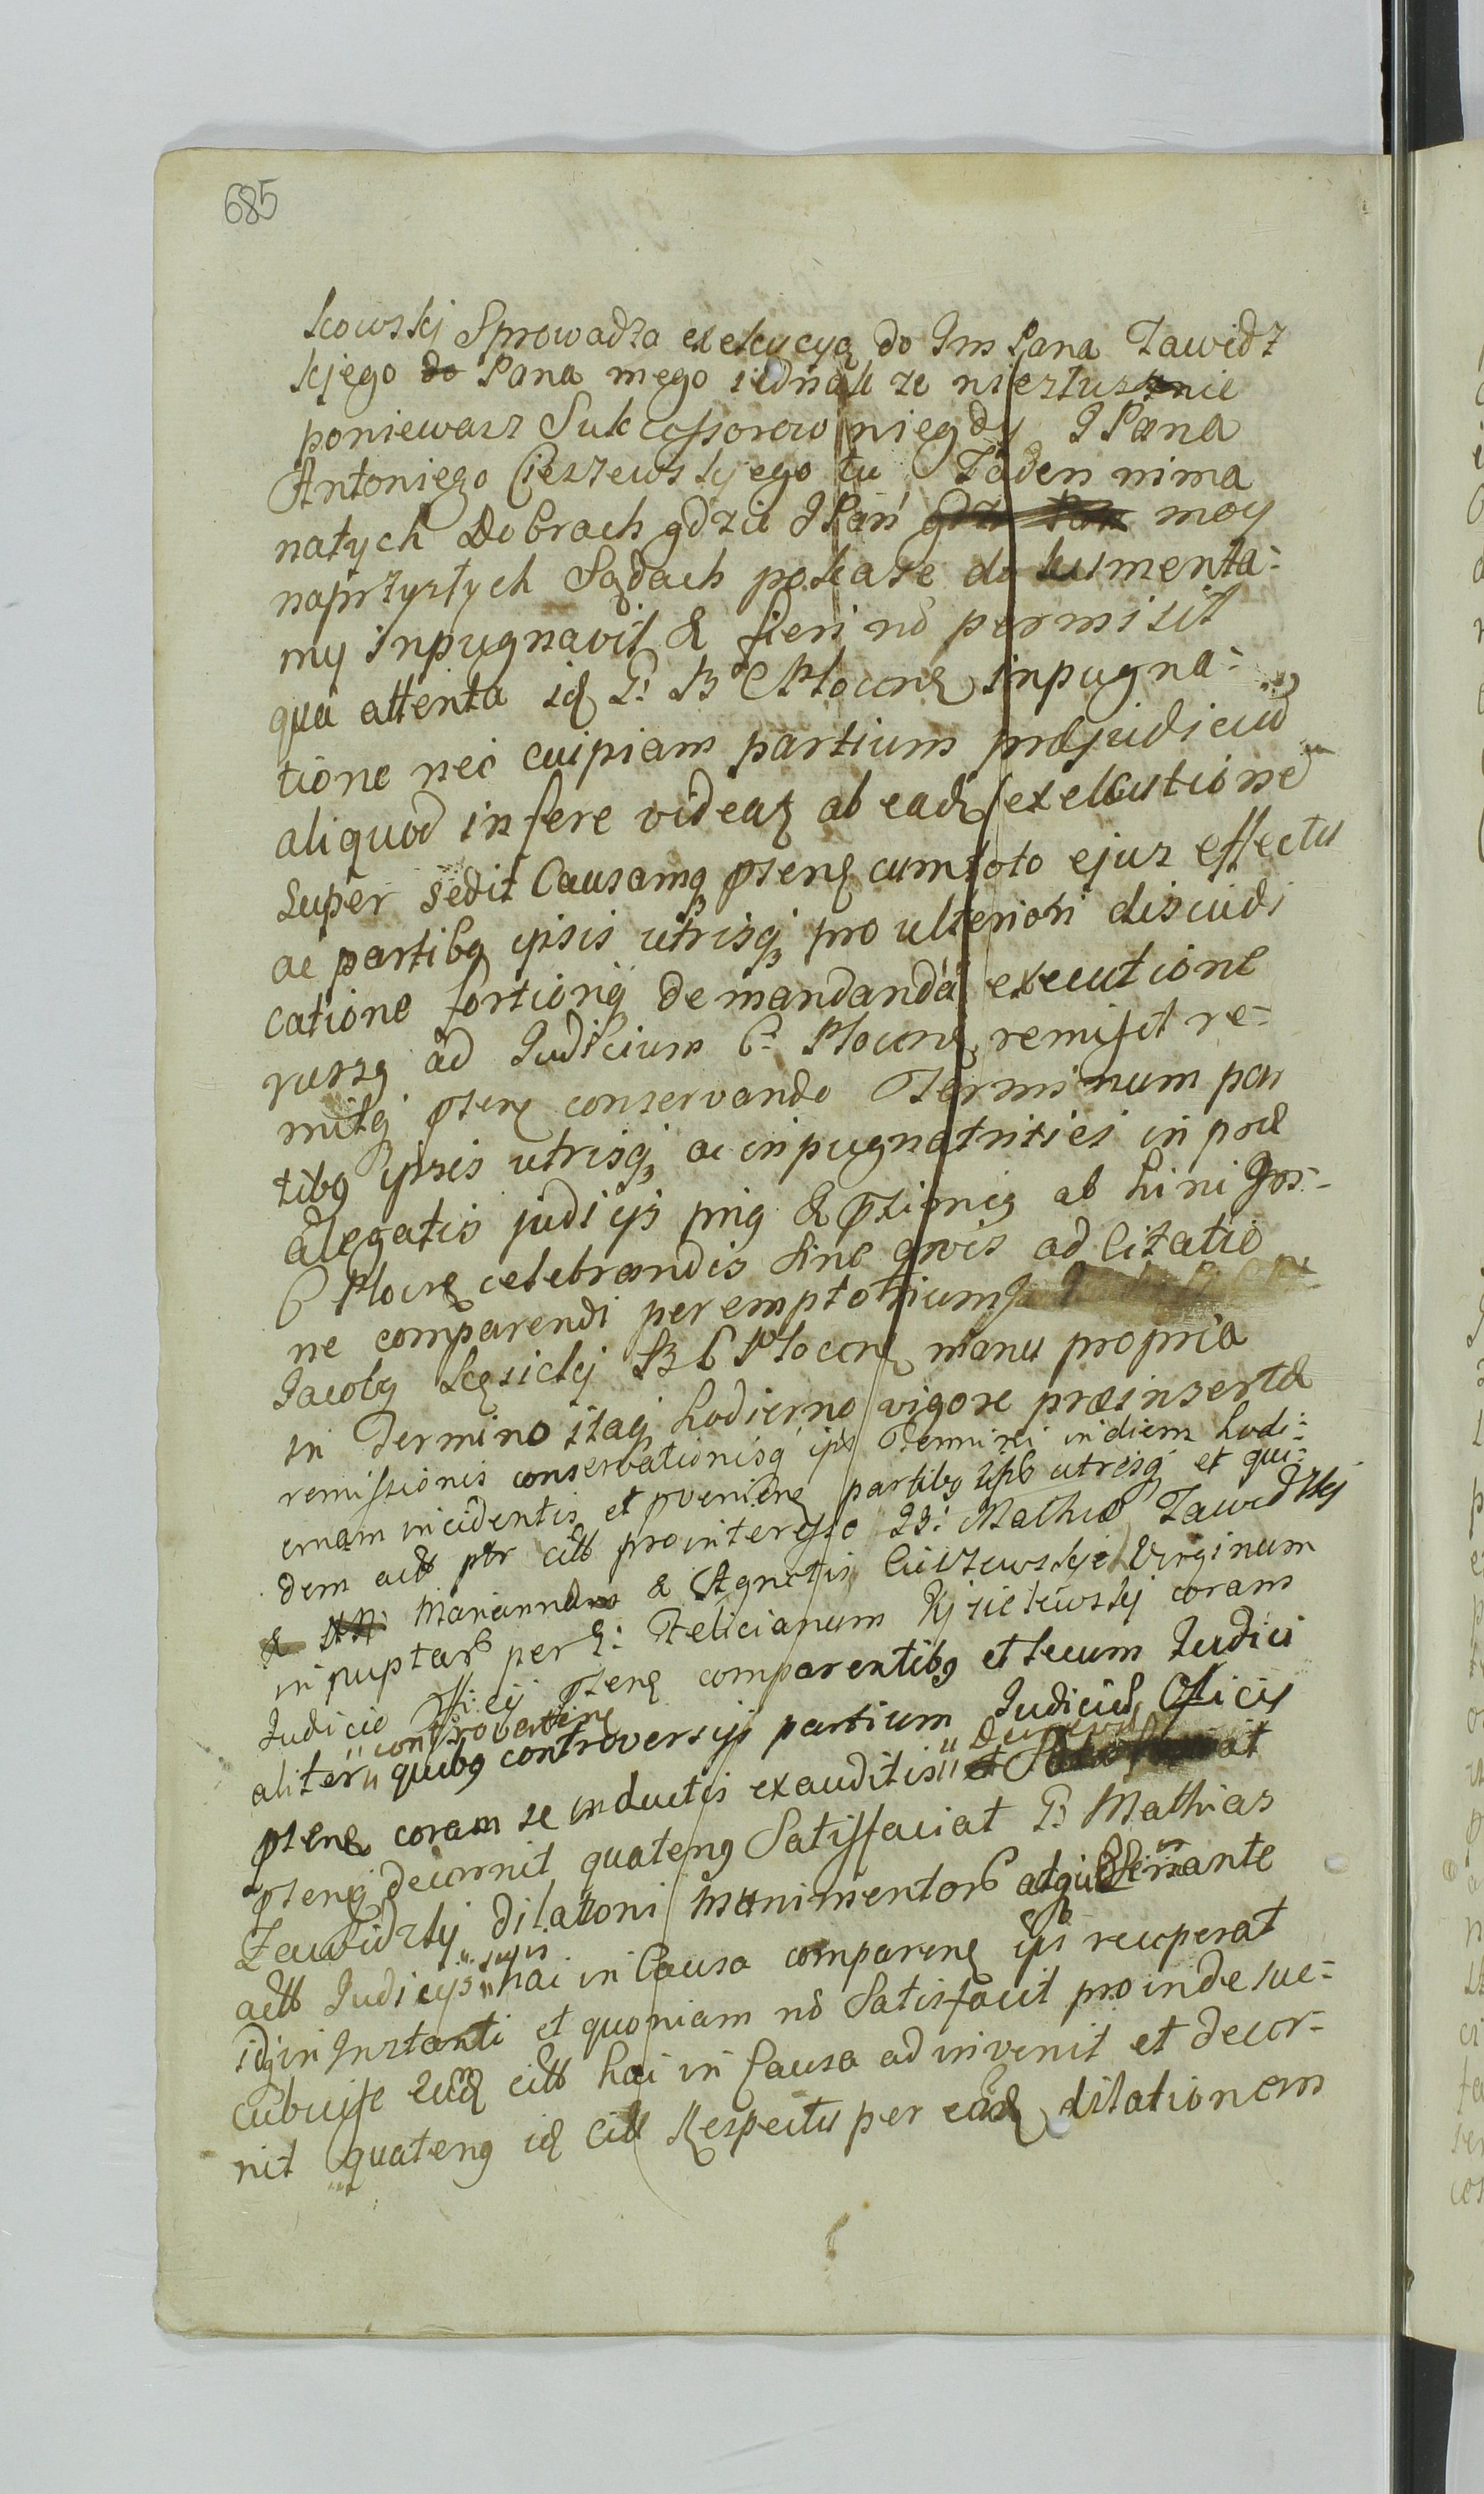 685
kowskj Sprowadza exekucyą do Jm Pana Zawidz
kjego do Pana mego iednak ze niesłusznie
poniewasz Sukcessorow niegdy J Pana
Antoniego Cieszewskjego tu Zaden nima
natych Dobrach gdzie JPan moy
naprzyszłych Sądach pokaze dokumenta-
my inpugnavit & fieri no permisit
qua attenta id G: B C Plocen inpugna-
tione nec cuipiam partium præjudiciu
aliquod infere videat ab ead executione
Super sedit Causamq pten cum toto ejus effectu
ac partibg ipsis utrisq pro ulteriori disiudi
catione fortioriq demandanda executione
rursg ad Judicium C. Plocen remisit re-
mitq pten conservando Terminum par
tibg ipsis utrisq ac inpugnatritiei in præ
alegatis judicijs
C Plocen celebrandis sine quovis ad citatio
ne comparendi peremptorium
Jacobg Lęsickj B C Plocen manu propria
in Termino itaq hodierno vigore præinserta
remissionis conservationisq ips Termini in diem hodi-
ernam incidentis et pvenien partibg ipsis utrisq et qui-
dem actt ptr citt pro interesse GG: Mathiæ Zawidzkj
Mariannæ & Agnetis Cieszewskje Virginum
inpuptar per G: Felicianum Kjsielewskj coram
Judicio Officij pten comparentibg et secum Judici
aliter "controverten" quibg controversijs partium Judiciu Officij
pten coram se inductis exauditis "Decrevit" at
pten decernit quateng Satisfaciat G Mathias
Zawidzkj dilationi munimentor
actt Judicijs "suijs" hai in Causa comparen ips recuperat
idq in Instanti et quoniam no Satisfacit proinde suc-
cubuisse eund citt hai in Causa ad invenit et decer-
nit quateng id citt Respectu per eand dilationem